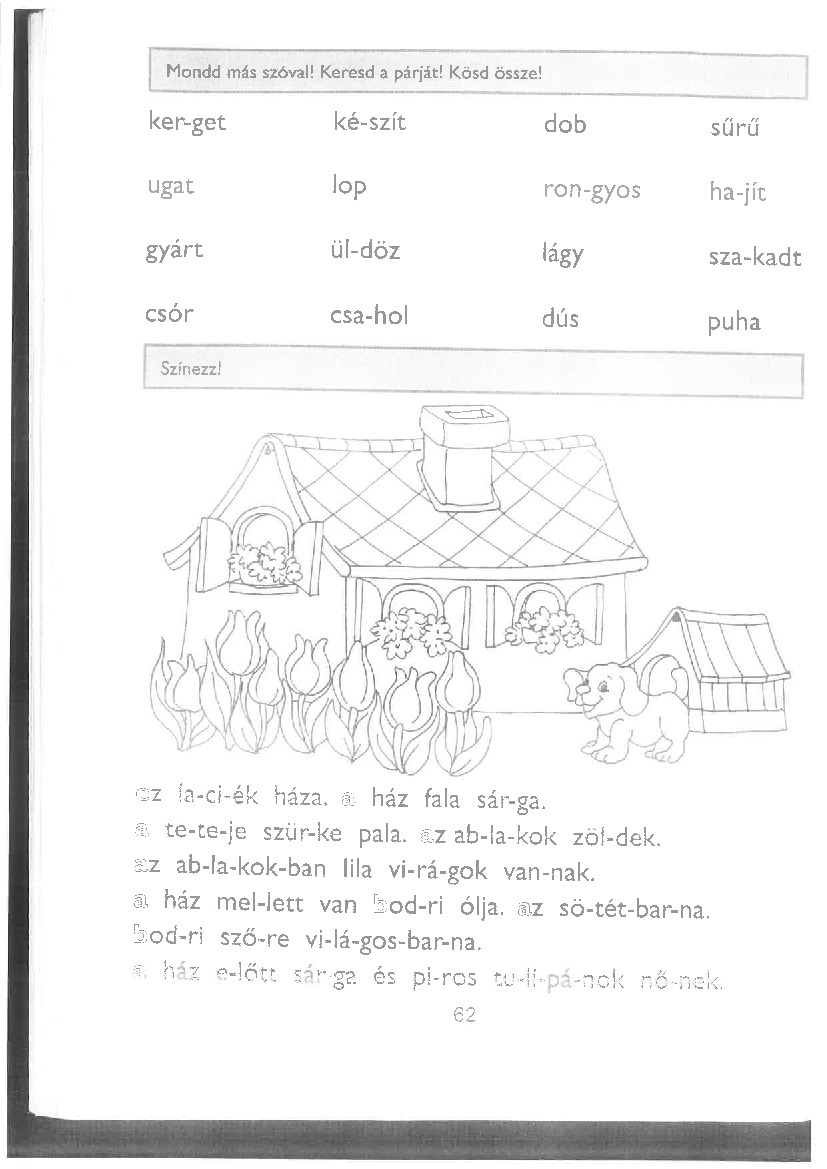 Mondd más szóval! Keresd a párját! Kösd össze!
ker-get ké-szít dob sűrű
ugat lop ron-gyos ha-jít
gyárt ül-döz lágy sza-kadt
csór csa-hol dús puha
Színezz!
ez la-ci-ék háza. a ház fala sár-ga.
a te-te-je szür-ke pala. az ab-la-kok zöl-dek.
az ab-la-kok-ban lila vi-rá-gok van-nak.
a ház mel-lett van bod-ri ólja. az sö-tét-bar-na.
bod-ri sző-re vi-lá-gos-bar-na.
a ház e-lőtt sár-ga és pi-ros tu-li-pá-nok nő-nek.
62